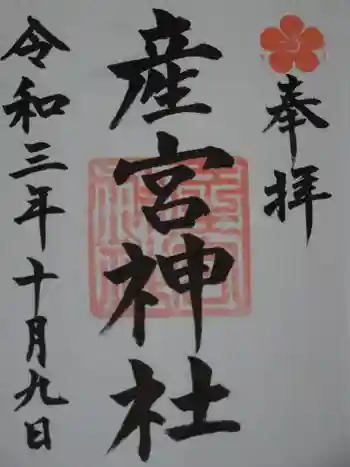 奉拝
産宮神社
令和三年十月九日